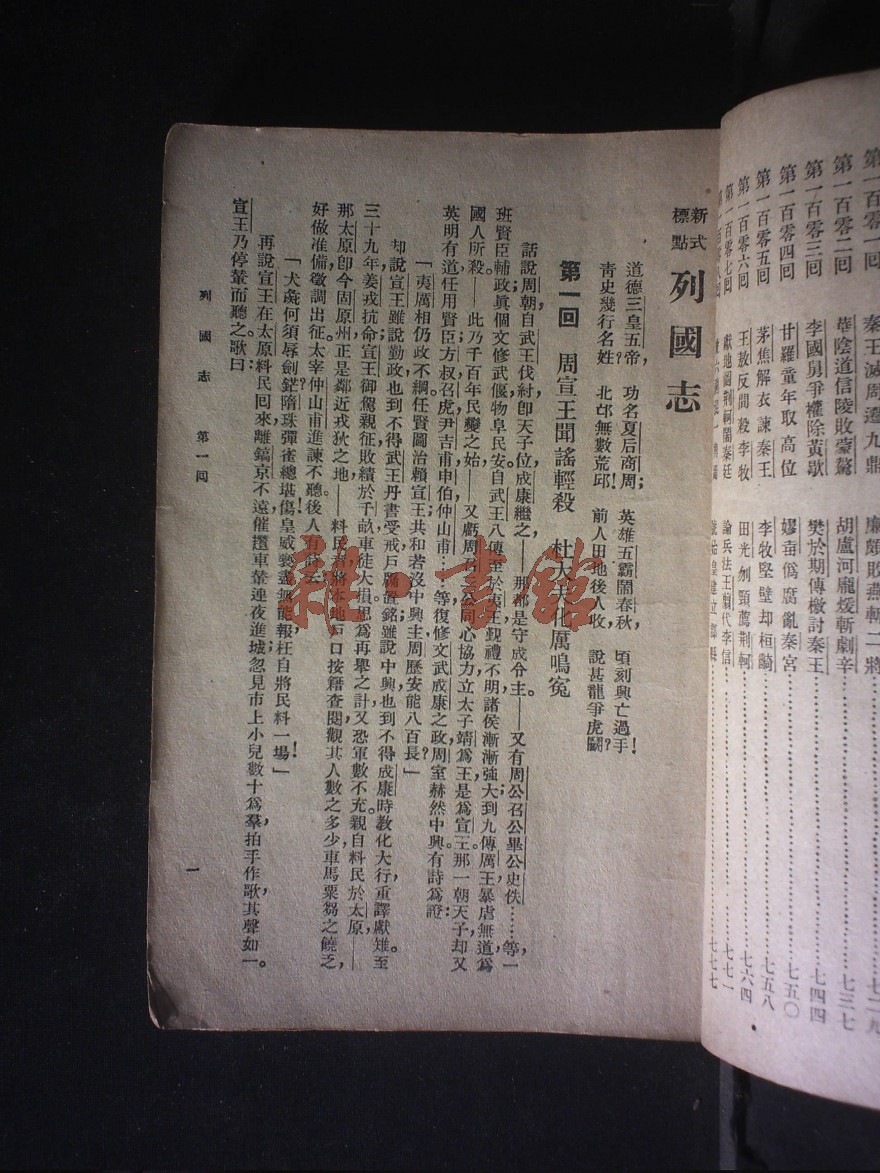 第一百零一回　秦王滅周遷九鼎　廉頗敗燕斬二將⋯⋯七二九
第一百零二回　華陰道信陵敗蒙驁　胡盧河龐煖斬劇辛⋯⋯七三七
第一百零三回　李國舅爭權除黃歇　樊於期傳檄討秦王⋯⋯七四四
第一百零四回　甘羅童年取高位　嫪毐僞腐亂秦宮⋯⋯七五〇
第一百零五回　茅焦解衣諫秦王　李牧堅壁却桓齮⋯⋯七五八
第一百零六回　王敖反間殺李牧　田光刎頸薦荆軻⋯⋯七六四
第一百零七回　獻地圖荆軻鬧秦廷　論兵法王翦代李信⋯⋯七七一
七七七
新式標點 列國志
道德三皇五帝，功名夏后商周；英雄五霸鬧春秋，頃刻興亡過手！
靑史幾行名姓？北邙無數荒邱！前人田地後人收，說甚龍爭虎鬭？
第一回　周宣王聞謠輕殺　杜大夫化厲鳴冤
話說周朝自武王伐紂，卽天子位，成康繼之——那都是守成令主。——又有周公召公畢公史佚……等一
班賢臣輔政，眞個文修武偃，物阜民安。自武王八傳至於夷王，覲禮不明，諸侯漸漸強大。到九傳厲王，暴虐無道，爲
國人所殺——此乃千百年民變之始——又虧周召二公同心協力，立太子靖爲王，是爲宣王。那一朝天子，却又
英明有道，任用賢臣方叔召虎尹吉甫申伯仲山甫……等，復修文武成康之政，周室赫然中興。有詩爲證：
「夷厲相仍政不綱，任賢圖治賴宣王；共和若沒中興主，周歷安能八百長？」
却說宣王雖說勤政，也到不得武王丹書受戒，戶牖置銘；雖說中興，也到不得成康時敎化大行，重譯獻雉。至
三十九年，姜戎抗命，宣王御駕親征，敗績於千畝，車徒大損，思爲再舉之計，又恐軍數不充，親自料民於太原——
那太原卽今固原州，正是鄰近戎狄之地——料民者，將本地戶口，按籍查閱，觀其人數之多少，車馬粟芻之饒乏，
好做准備，徵調出征。太宰仲山甫進諫不聽。後人有詩云：
「犬彘何須辱劍鋩？隋珠彈雀總堪傷！皇威褻盡無能報，枉自將民料一場！」
再說宣王在太原料民回來，離鎬京不遠，催攢車輦，連夜進城。忽見市上小兒數十爲羣，拍手作歌，其聲如一。
宣王乃停輦而聽之。歌曰：
列國志　第一回
一
雜·書館